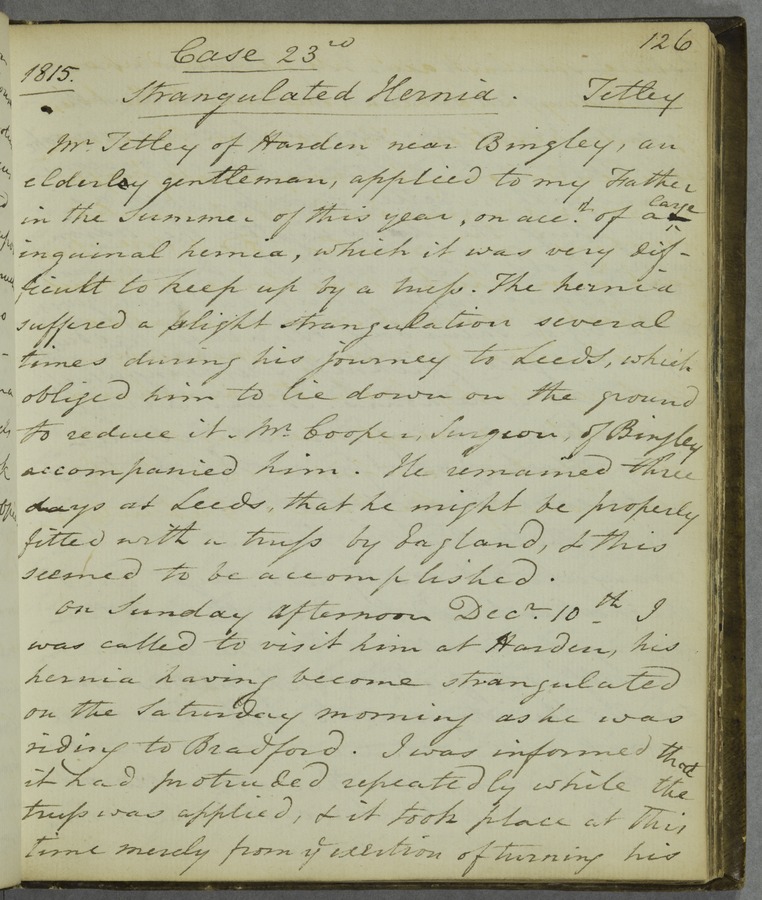 126
Case 23rd
1815.
Strangulated Hernia. Tetley
Mr. Tetley of Harden near Bingley, an
elderley gentleman, applied to my Father
in the Summer of this year, on acct. of a large
inguinal hernia, which it was very dif-
ficult to keep up by a truss. The hernia
suffered a slight strangulation several
times during his journey to Leeds, which
obliged him to lie down on the ground
to reduce it. Mr. Cooper, Surgeon, of Bingley
accompanied him. He remained three
days at Leeds, that he might be properly
fitted with a truss by Eagland, & this
seemed to be accomplished.
On Sunday afternoon Decr. 10th I
was called to visit him at Harden, his
hernia having become strangulated
on the Saturday morning as he was
riding to Bradford. I was informed that
it had protruded repeatedly while the
truss was applied, & it took place at this
time merely from ye exertion of turning his